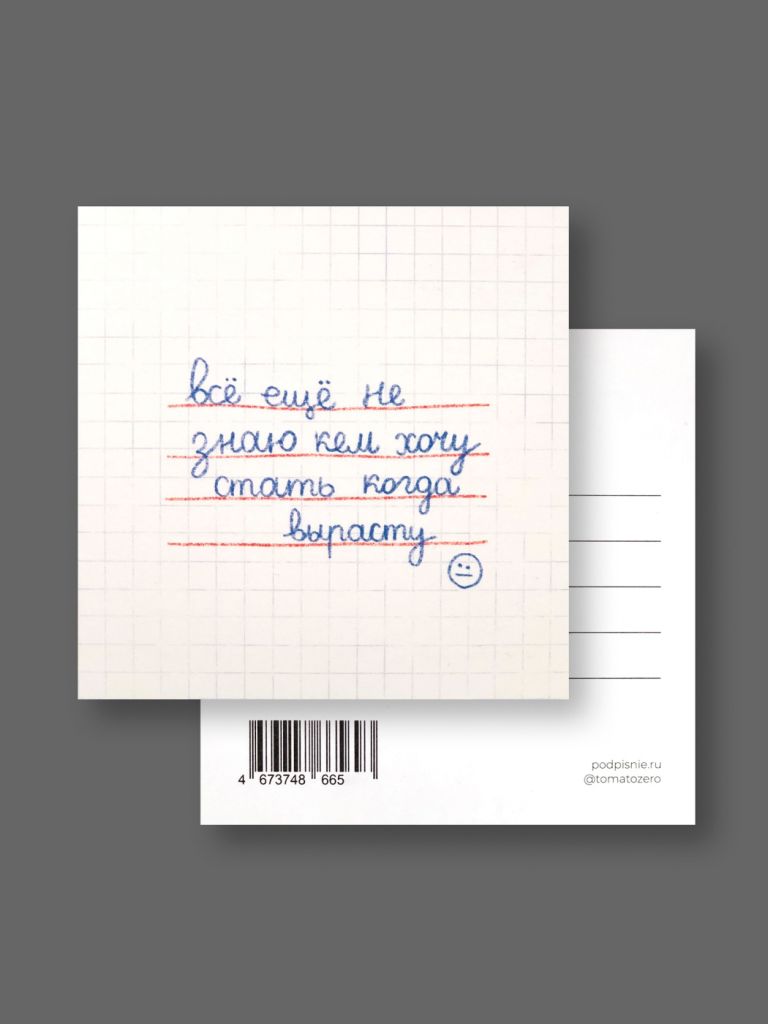 всё ещё не
знаю кем хочу
стать когда
вырасту
4 673748 665
podpisnie.ru
@tomatozero